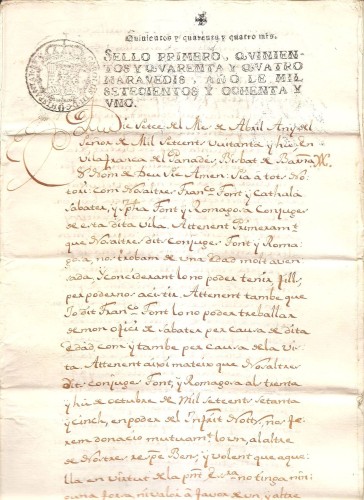 Quinientos y quarenta y quatro mrs.
SELLO PRIMERO, QVINIEN-
TOS Y QVARENTA Y QVATRO
MARAVEDIS, AÑO DE MIL
SETECIENTOS Y OCHENTA Y
VNO.
Die Setse del Mes de Abril Any del
Señor de Mil Setcents Vuitanta y hu, en
Vilafranca del Panades, Bisbat de Barna
Nom de Deu Sie Amen: Sia a tots No-
tori: Com Nosaltres Franco Font y Cathala
Sabater, y Font y Romagosa Conjuges
de esta dita Vila. Attenent Primeramt
que Nosaltres dits Conjuges Font y Roma-
gosa, nos trobam de una edad molt aven-
sada, y considerant lo no poder tenir fills,
per poder nos asistir. Attenent tambe que
Jo dit Franco Font lo no poder treballar
de mon ofici de Sabater per causa de dita
edad, com y tambe per causa de la vis-
ta. Attenent aixi mateix que Nosaltres
dits conjuges Font, y Romagosa al trenta
y hu de octubre de Mil Setcents Setanta
y cinch, en poder del infrit Notti, nos fe-
rem donacio mutuamt lo un, al altre
de Nostres respe Bens, y volent que aque-
lla en virtut de la pnt no tinga nin-
guna forsa, ni valor á favor de un y altre